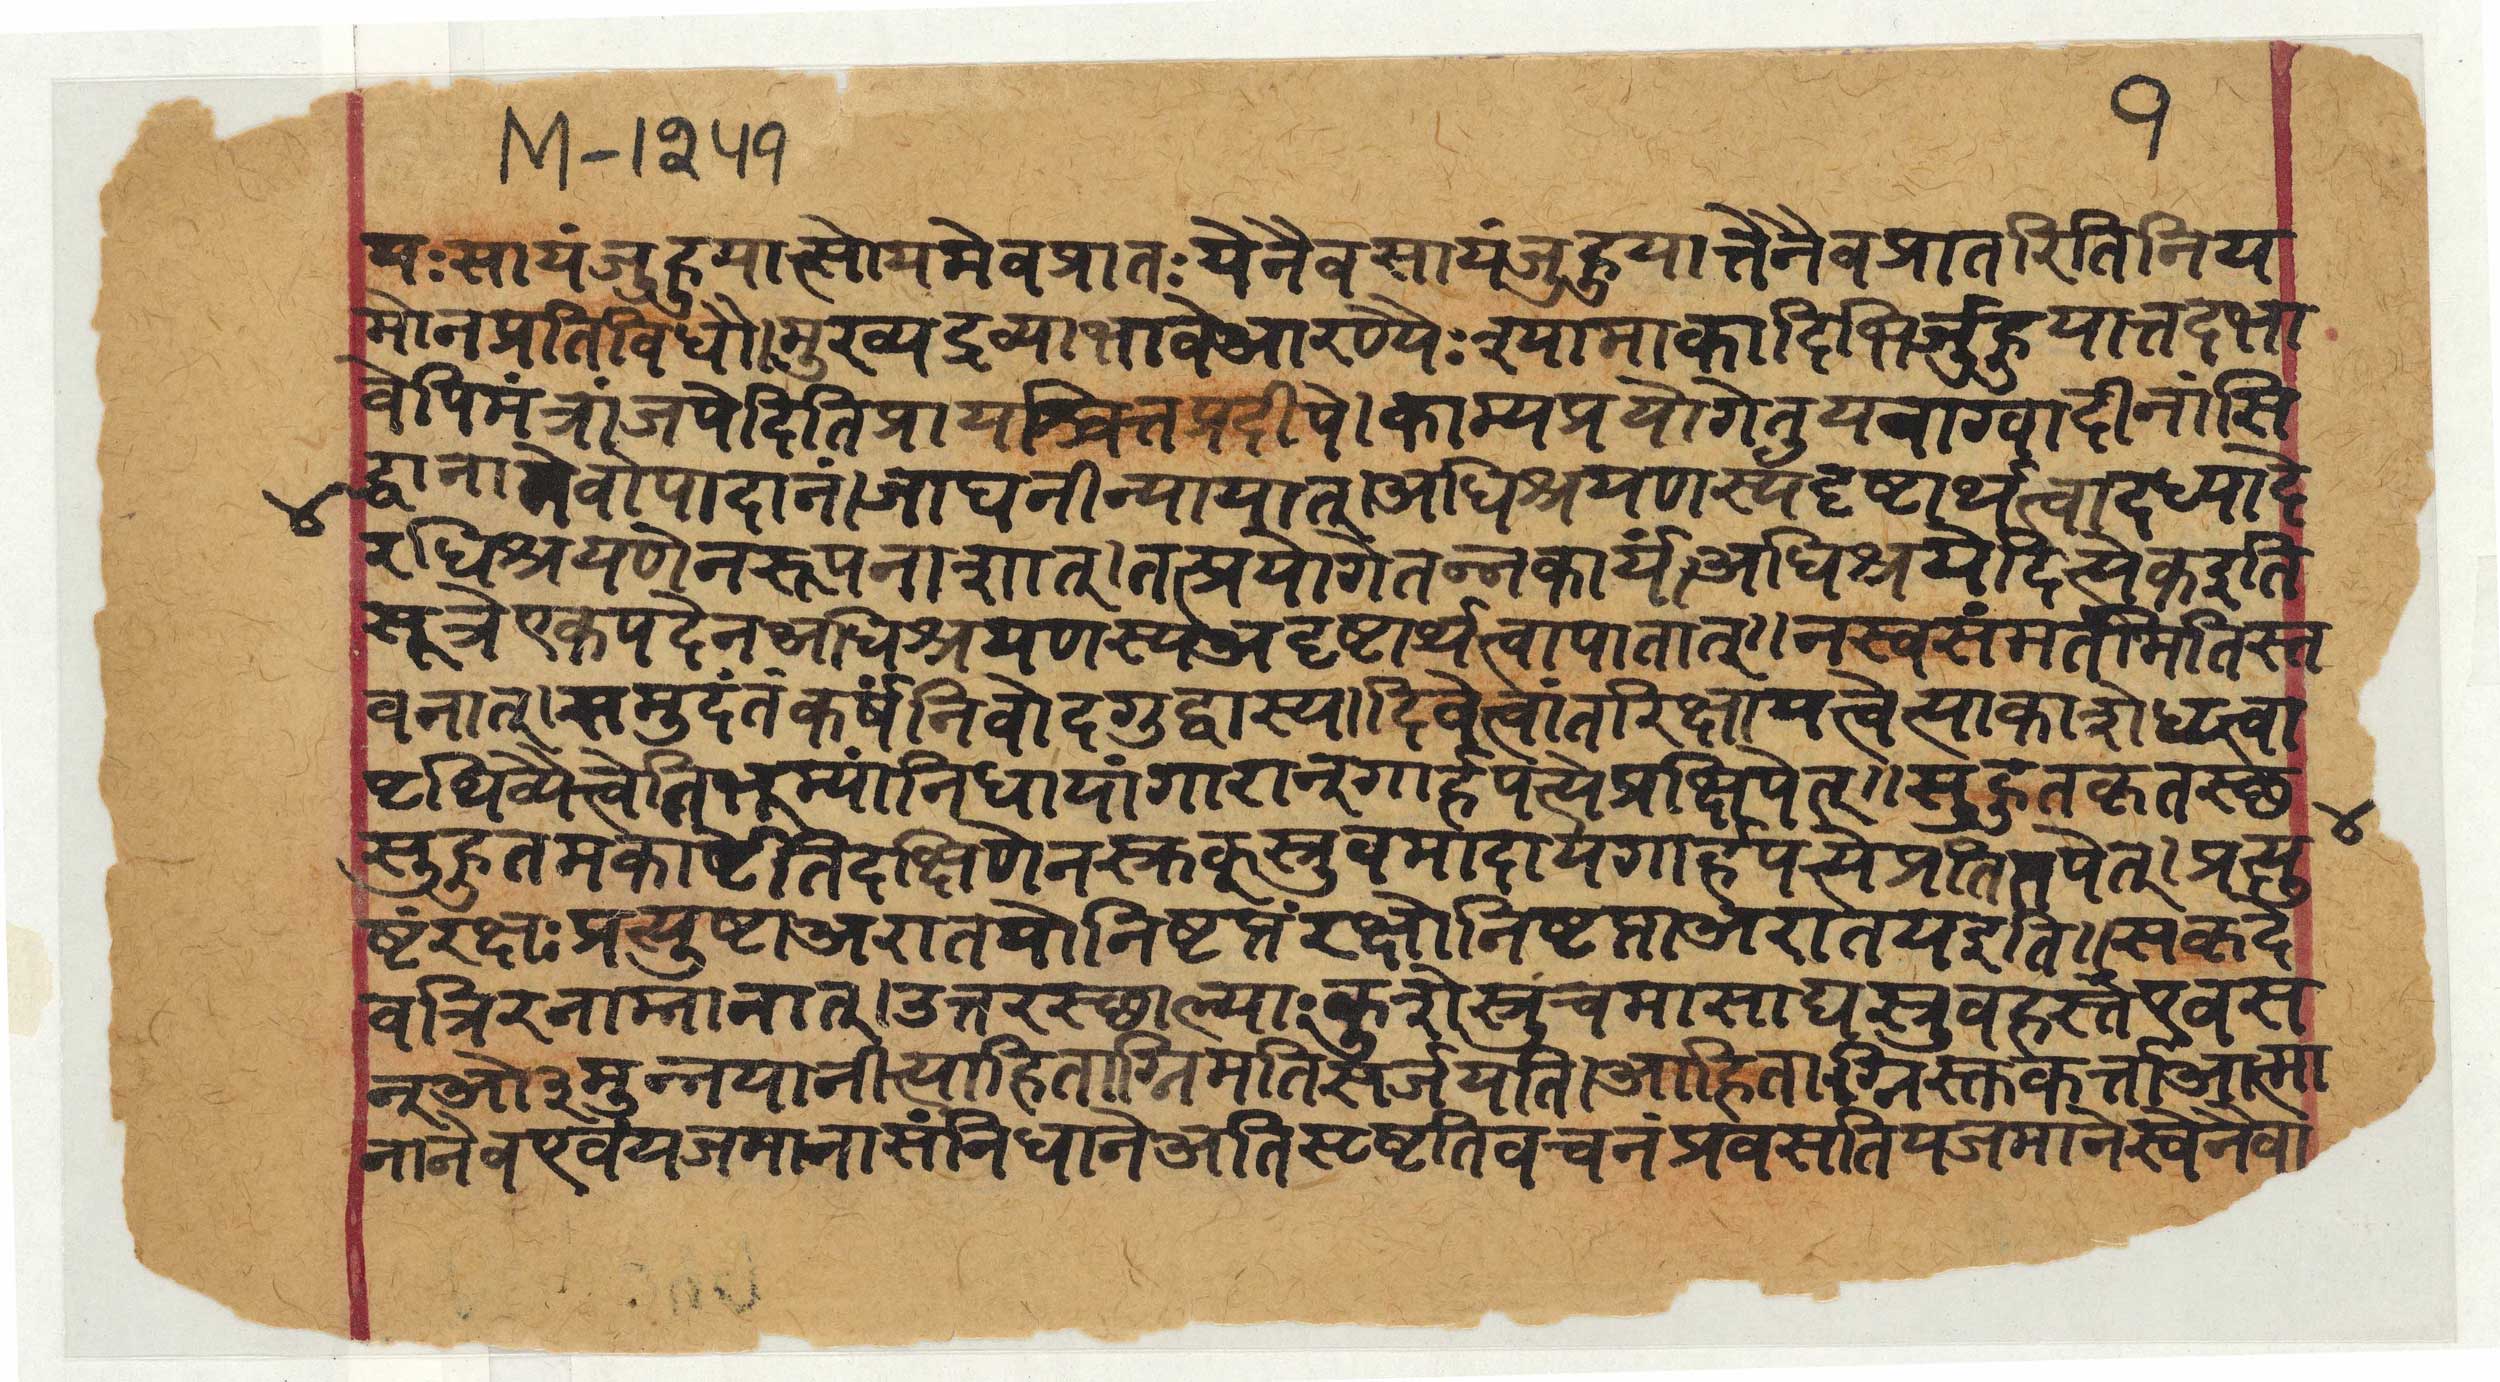 M-१२५१
१
यः सायं जुहुयात्सोयमेव प्रातः येनैव सायं जुहुयात्तेनैव प्रातरिति निय
मो न प्रतिविधौ। मुख्यद्रव्याभावे आरण्यैः श्यामाकादिभिर्जुहुयात्तदभा
वेपि मंत्रां जपेदिति प्रायश्चित्तप्रदीपे। काम्यप्रयोगे तु यवाग्वादीनां सि
द्धानामेवोपादानं। जाघनीन्यायात्। अधिश्रयणस्य दृष्टार्थत्वादध्यादे
रधिश्रयणेन रूपनाशात्। तत्प्रयोगे तन्न कार्यं। अधिश्रयेदित्येक इति
सूत्रे एकपदेन अधिश्रयणस्य अदृष्टार्थत्वापातात्॥ न स्वसंमतमिति स्त
वनात्। समुदंतं कर्षंनिवोदगुद्वास्य। दिवेत्वांतरिक्षायत्वेत्याकाशे धृत्वा
पृथिव्यैत्वेति भूम्यां निधायांगारान् गार्हपत्ये प्रक्षिपेत्॥ सुहुतकृतस्छ
सुहुतमकार्ष्टेति दक्षिणेन स्रक्स्रुवमादाय गार्हपत्ये प्रतितपेत्। प्रत्यु
ष्टं रक्षः प्रत्युष्टा अरातयो निष्टप्तं रक्षो निष्टप्ता अरातय इति॥ सकृदे
व त्रिरनाम्नानात्। उत्तरस्छाल्याः कुशे स्रुचमासाद्य स्रुवहस्त एव स
न् ओ३मुन्नयानीत्याहिताग्निमतिसर्जयति। आहिताग्निस्तकर्त्ता आत्मा
नानेव एवं यजमानासंनिधाने अतिसृष्टति वचनं प्रवसति यजमाने स्वेनैवा